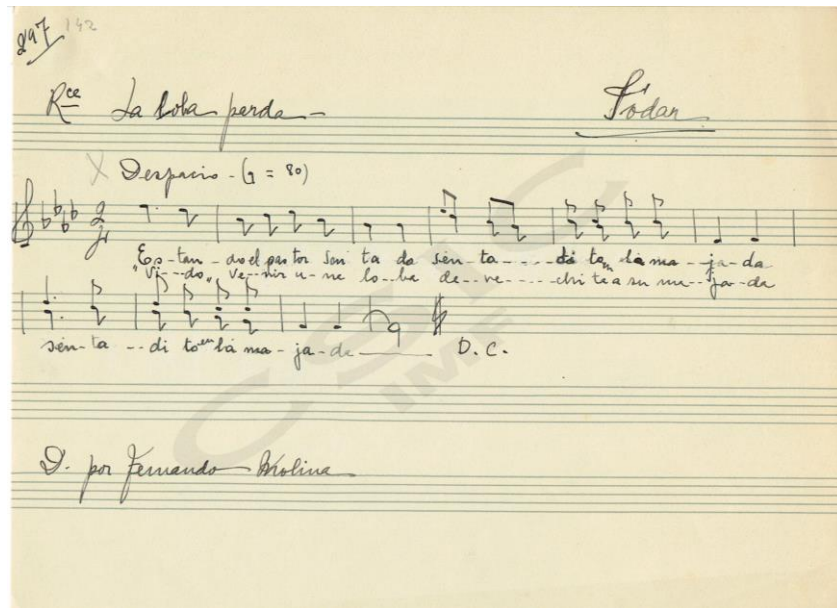 297 142
Rce La loba parda - Pódar
X Despacio - (♩ = 80)
Es-tan-do el pastor sen ta do sen-ta-----di to en la ma--ja-da
"Vi--do" ve-nir u-na lo-ba de-re-----chi te a su ma--ja-da
sen-ta--di to en la ma-ja-da D. C.
D. por Fernando Molina
CSIC
IMF